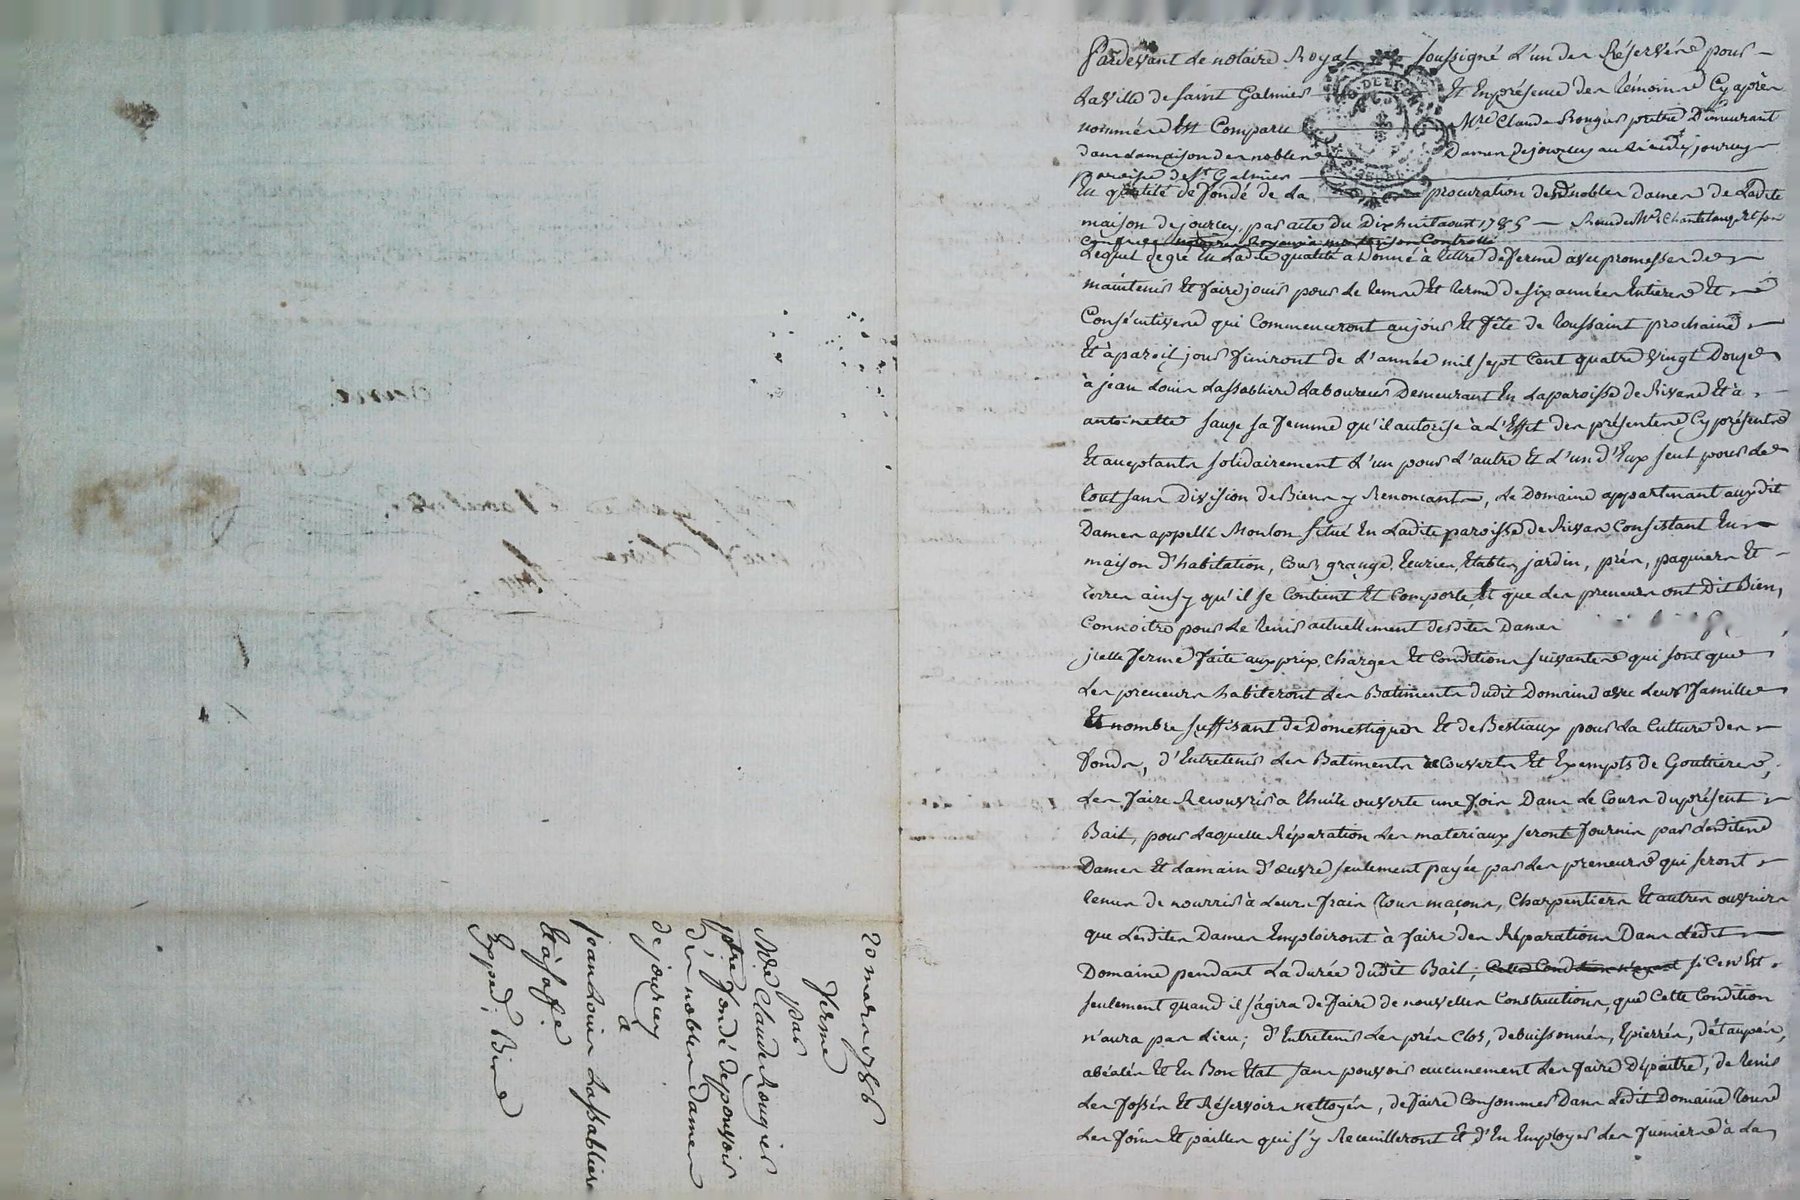 20 mars 1786
Ferme
par
Mre Claude Rougier
ptre fondé de pouvoir
des nobles Dames
de jourcey
à
jean Louis Lassabliere
et à sa fe
Exped. Bine
Pardevant le notaire Royal soussigné l'un des Réservés pour
la ville de saint Galmier et En présence des témoins Cy après
nommés Est Comparu Mre Claude Rougier prêtre Demeurant
dans la maison des nobles Dames de jourcey au lieu de jourcey
paroisse de St Galmier
En qualité de fondé de la procuration desd nobles dames de Ladite
maison de jourcey, par acte du Dix huit aout 1785 Chantelauze et son
Confrere notaires Royaux à montbrison Controllé
Lequel de gré En Ladite qualité a Donné à titre de ferme avec promesse de
maintenir Et faire jouir pour le tems Et terme de six années Entieres Et
Consécutives qui Commenceront aujour Et fête de toussaint prochaine
Et à pareil jour finiront de l'année mil sept Cent quatre vingt Douze
à jean Louis Lassabliere Laboureur Demeurant En La paroisse de Rivas Et à
antoinette sauze sa femme qu'il autorise à L'Effet des présentes Cy présents
Et acceptants solidairement L'un pour L'autre Et L'un d'Eux seul pour le
tout sans Division de Biens y Renonçants, Le Domaine appartenant auxdit
Dames appellé Monlon situé En Ladite paroisse de Rivas Consistant En
maison d'habitation, Cour, grange, Ecuries, Etables, jardin, prés, paquiers Et
terres ainsy qu'il se Contient Et Comporte, Et que les preneurs ont Dit Bien,
Connoitre pour Le tenir actuellement desdites Dames
jcelle ferme faite aux prix, charges Et Conditions suivantes qui sont que
Les preneurs habiteront Les Batiments dudit Domaine avec Leur famille
Et nombre suffisant de Domestiques Et de Bestiaux pour La Culture des
fonds, d'Entretenir Les Batiments Couverts Et Exempts de Gouttieres,
Les faire Recouvrir à thuile ouverte une fois Dans Le Cours du présent
Bail, pour Laquelle Réparation Les materiaux seront fournis par Lesdites
Dames Et La main d'œuvre seulement payée par Les preneurs qui seront
tenus de nourrir à Leurs frais tous maçons, Charpentiers Et autres ouvriers
que Lesdites Dames Emploiront à faire des Réparations Dans Ledit
Domaine pendant La durée dudit Bail; Cette Condition n'ayant si Ce n'Est
seulement quand il s'agira de faire de nouvelles Constructions, que Cette Condition
n'aura pas Lieu; d'Entretenir Les prés Clos, debuissonnés, Epierrés, détaupés,
abéalés Et En Bon Etat sans pouvoir aucunement Les faire Dépaitre, de tenir
Les fossés Et Réservoirs nettoyés, de faire Consommer Dans Ledit Domaine tous
Les foins Et pailles qui s'y Receuilleront Et d'En Employer Les fumiers à La